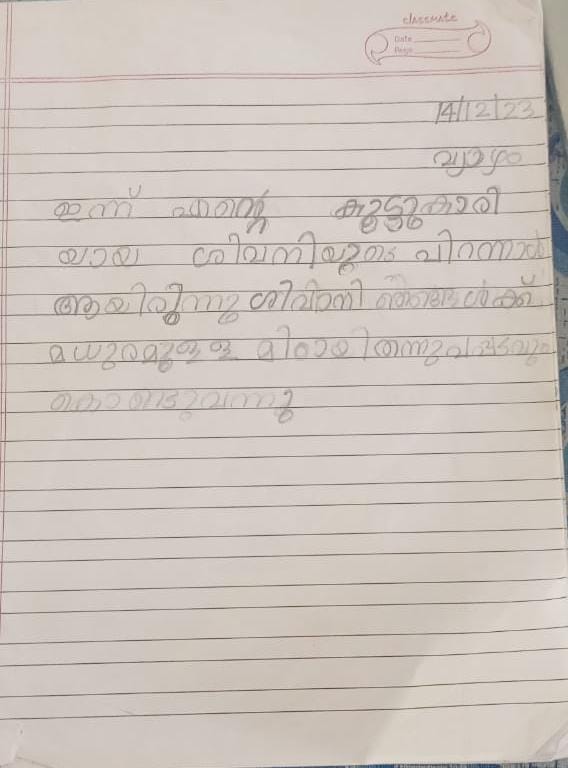 classmate
Date
Page
14/12/23
വ്യാഴം
ഇന്ന് എന്റെ കൂട്ടുകാരി
യായ ശിവനിയുടെ പിറന്നാൾ
ആയിരുന്നു ശിവാനി ഞങ്ങൾക്ക്
മധുരമുള്ള മിഠായി തന്നു
കൊണ്ടുവന്നു